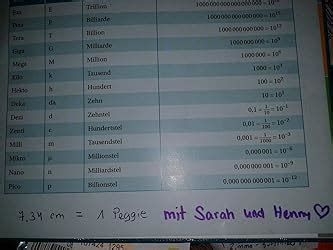 Exa E Trillion 1000 000 000 000 000 000 = 10¹⁸
Peta P Billiarde 1000 000 000 000 000 = 10¹⁵
Tera T Billion 1000 000 000 000 = 10¹²
Giga G Milliarde 1000 000 000 = 10⁹
Mega M Million 1000 000 = 10⁶
Kilo k Tausend 1000 = 10³
Hekto h Hundert 100 = 10²
Deka da Zehn 10 = 10¹
Dezi d Zehntel 0,1 = 1/10 = 10⁻¹
Zenti c Hundertstel 0,01 = 1/100 = 10⁻²
Milli m Tausendstel 0,001 = 1/1000 = 10⁻³
Mikro µ Millionstel 0,000 001 = 10⁻⁶
Nano n Milliardstel 0,000 000 001 = 10⁻⁹
Pico p Billionstel 0,000 000 000 001 = 10⁻¹²
7,34 cm = 1 Peggie mit Sarah und Henny ♡